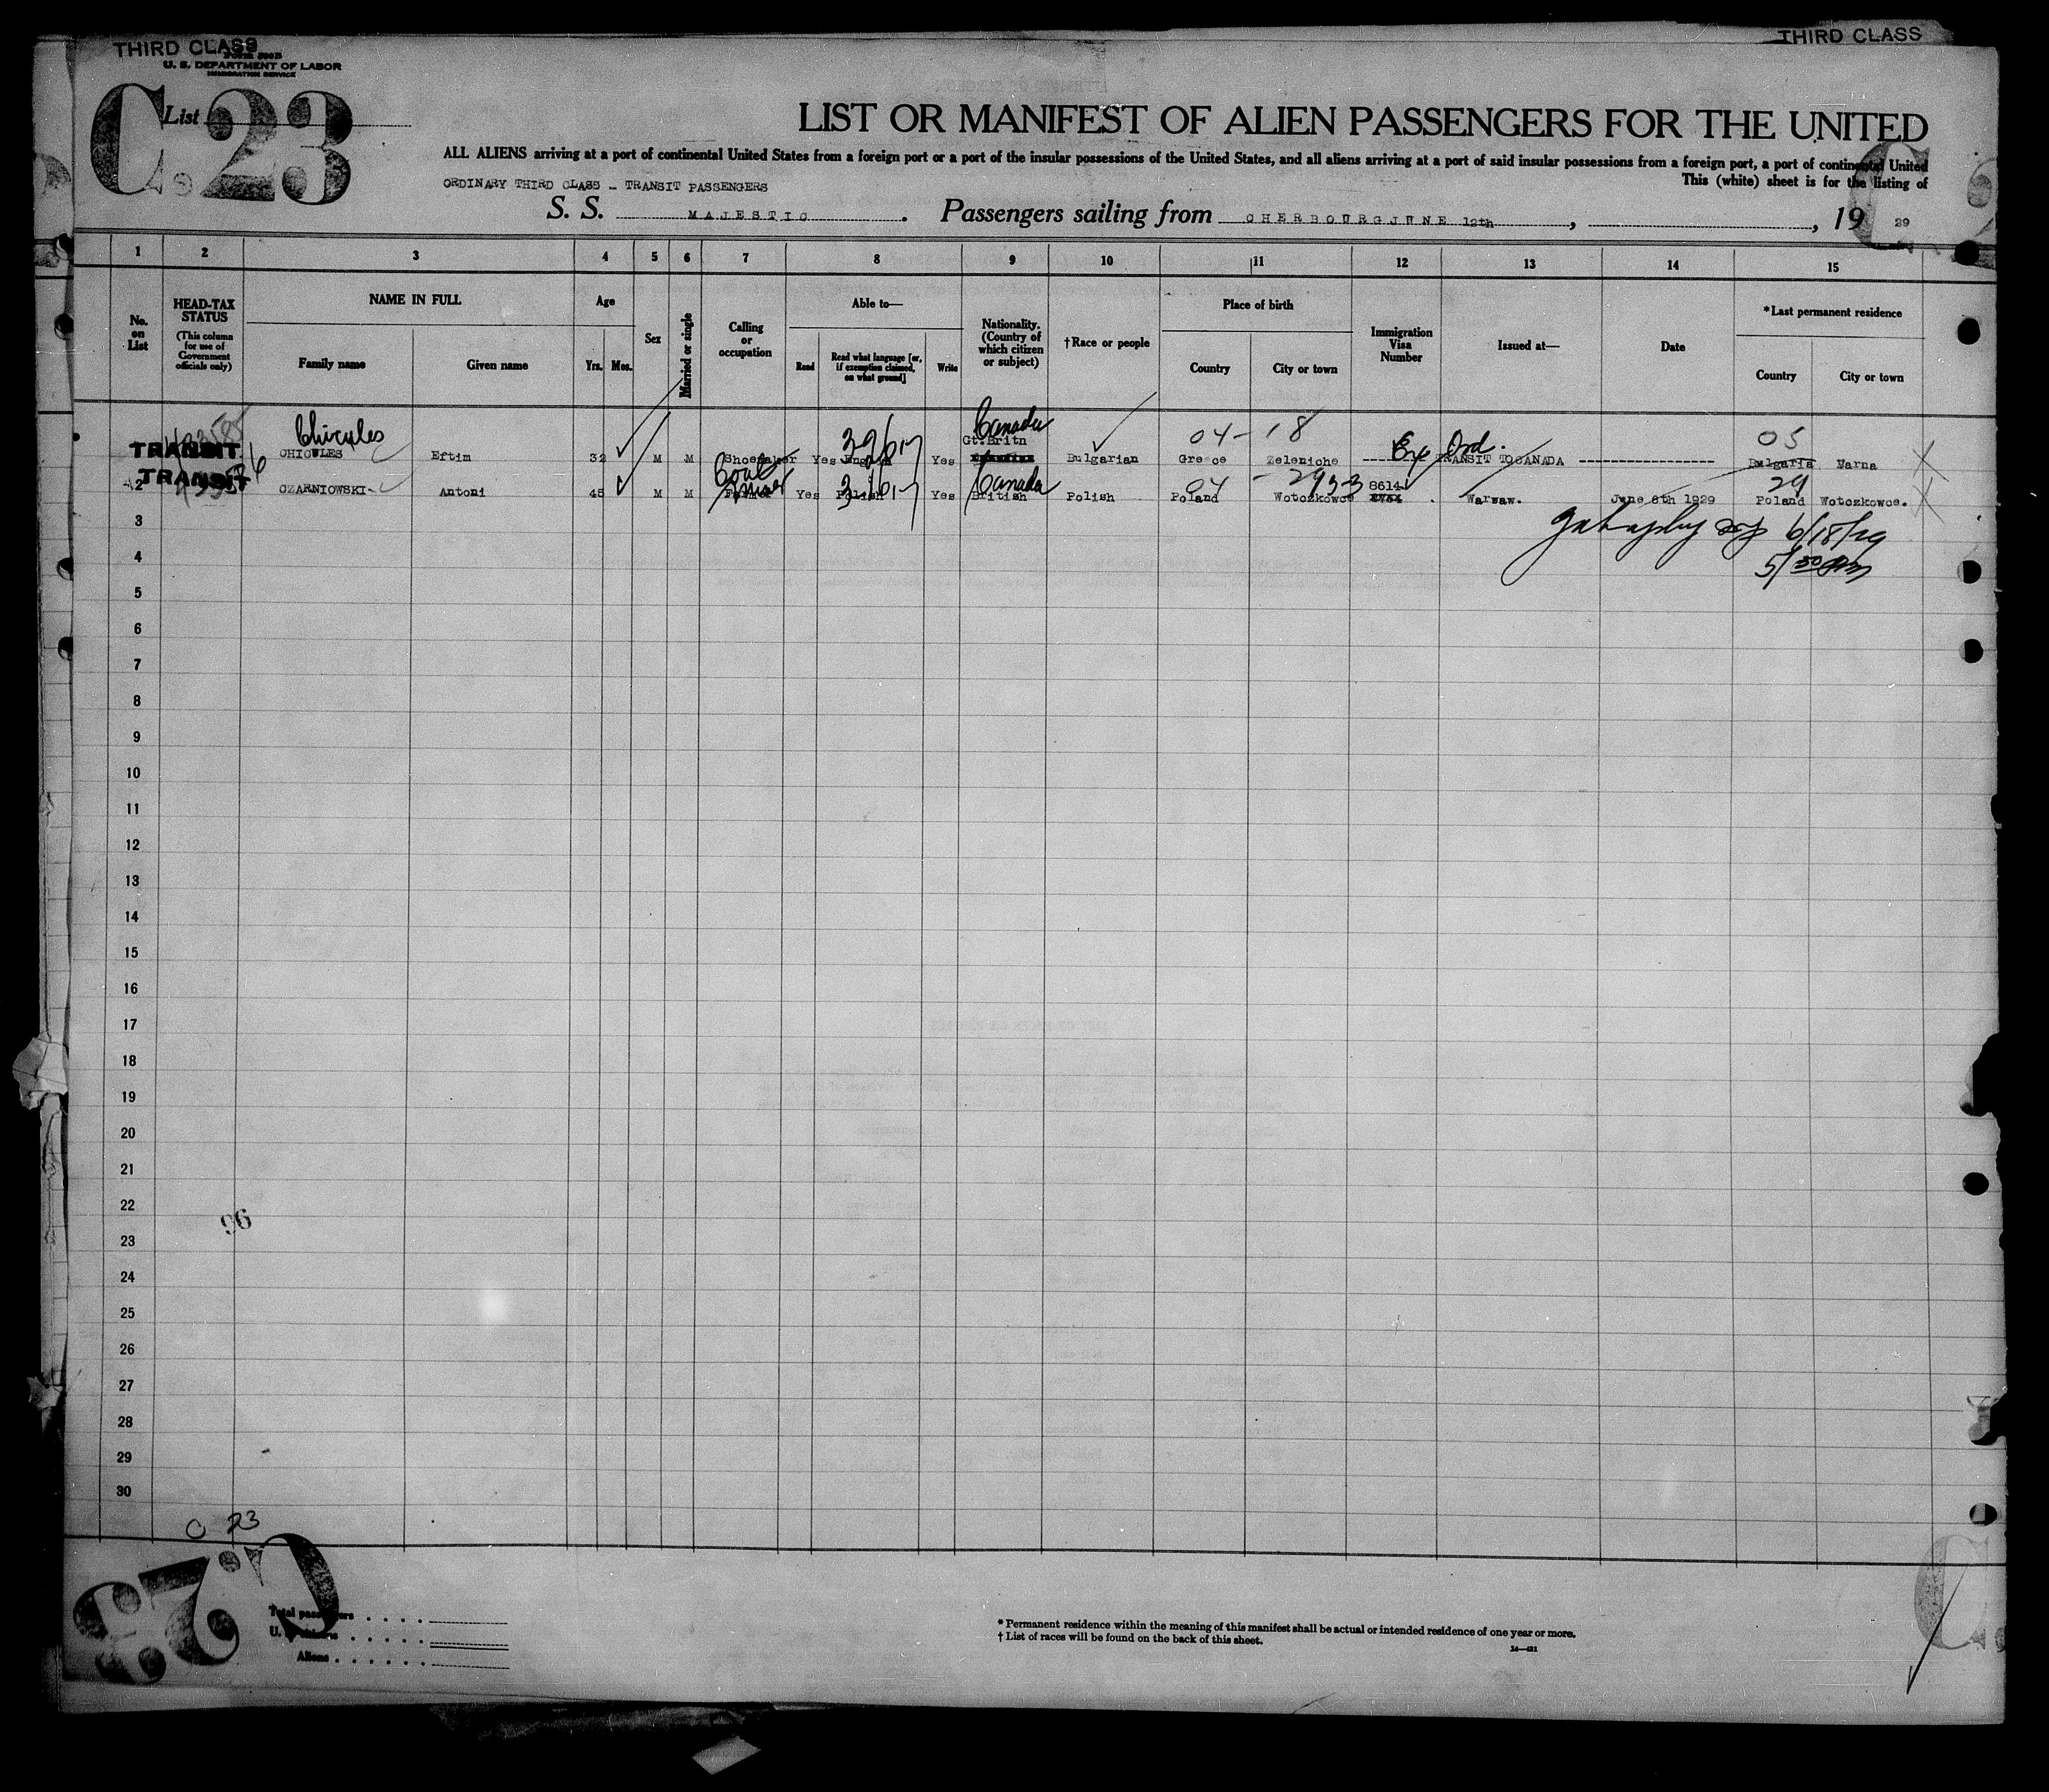 THIRD CLASS
THIRD CLASS
U. S. DEPARTMENT OF LABOR
IMMIGRATION SERVICE
List
C.23
LIST OR MANIFEST OF ALIEN PASSENGERS FOR THE UNITED
ALL ALIENS arriving at a port of continental United States from a foreign port or a port of the insular possessions of the United States, and all aliens arriving at a port of said insular possessions from a foreign port, a port of continental United
This (white) sheet is for the listing of
ORDINARY THIRD CLASS - TRANSIT PASSENGERS
S. S. MAJESTIC. Passengers sailing from CHERBOURG JUNE 12th, , 19 29
1 2 3 4 5 6 7 8 9 10 11 12 13 14 15
No. on List
HEAD-TAX STATUS
(This column for use of Government officials only)
NAME IN FULL
Family name
Given name
Age
Yrs. Mos.
Sex
Married or single
Calling or occupation
Able to—
Read
Read what language [or, if exemption claimed, on what ground]
Write
Nationality. (Country of which citizen or subject)
†Race or people
Place of birth
Country
City or town
Immigration Visa Number
Issued at—
Date
*Last permanent residence
Country
City or town
Chicules Canada
04 - 18 Ord. 05
Gt.Britn
TRANSIT CHICULES Eftim 32 M M Shoemaker Yes English Yes Bulgarian Greece Zeleniche TRANSIT TO CANADA Bulgaria Varna
Canada 04 - 2933 8614 29
TRANSIT
2 CZARNIOWSKI Antoni 45 M M Yes Polish Yes British Polish Poland Wotoczkowce Warsaw. June 8th 1929 Poland Wotoczkowce.
6/18/29
3
4
5
6
7
8
9
10
11
12
13
14
15
16
17
18
19
20
21
22
96
23
24
25
26
27
28
29
30
C 23
C.23
Total passengers
U. S. citizens
Aliens
* Permanent residence within the meaning of this manifest shall be actual or intended residence of one year or more.
† List of races will be found on the back of this sheet.